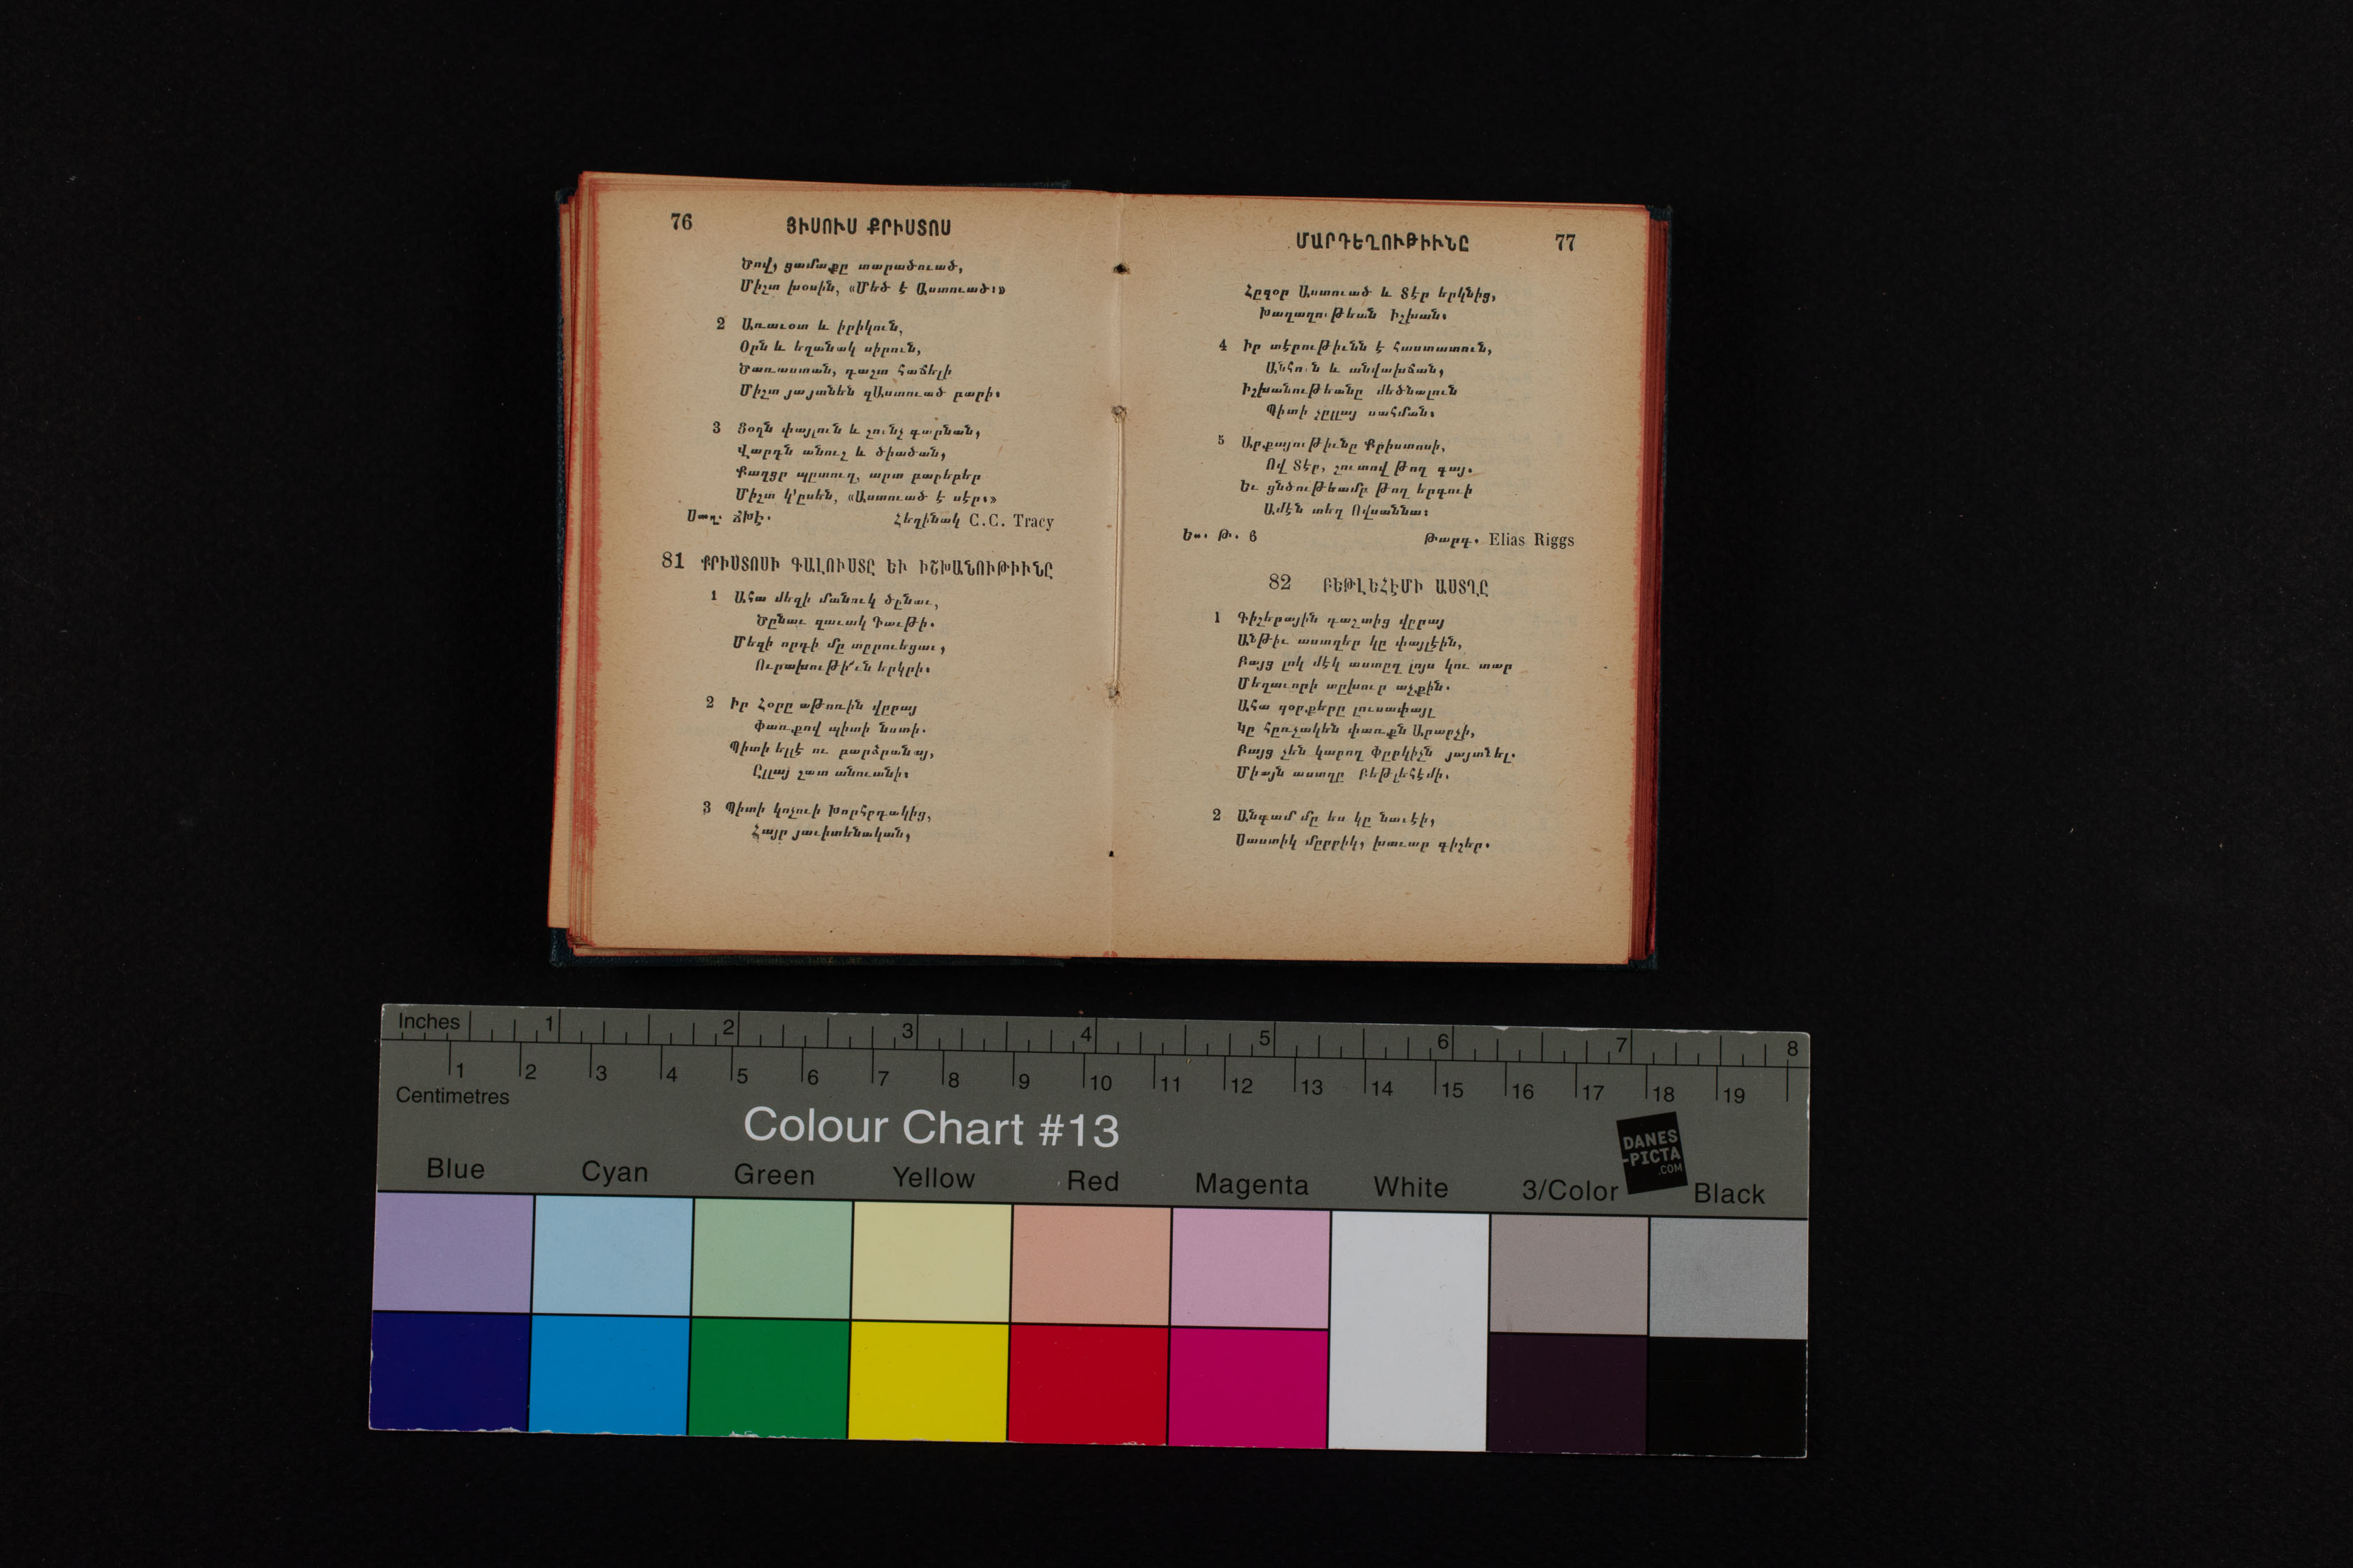 76 ՅԻՍՈՒՍ ՔՐԻՍՏՈՍ
Ծով, ցամաքը տարածուած,
Միշտ խօսին, «Մեծ է Աստուած։»
2 Առաւօտ և իրիկուն,
Օրն և եղանակ սիրուն,
Ծառաստան, դաշտ հաճելի
Միշտ յայտնեն զԱստուած բարի։
3 Ցօղն փայլուն և շունչ գարնան,
Վարդն անուշ և ծիածան,
Քաղցր պըտուղ, արտ բարեբեր
Միշտ կ՚ըսեն, «Աստուած է սէր։»
Սաղ. ՃԽԷ. Հեղինակ C.C. Tracy
81 ՔՐԻՍՏՈՍԻ ԳԱԼՈՒՍՏԸ ԵՒ ԻՇԽԱՆՈՒԹԻՒՆԸ
1 Ահա մեզի մանուկ ծընաւ,
Ծընաւ զաւակ Դաւթի.
Մեզի որդի մը տըրուեցաւ,
Ուրախութի՜ւն երկրի։
2 Իր Հօրը աթոռին վըրայ
Փառքով պիտի նստի.
Պիտի ելլէ ու բարձրանայ,
Ըլլայ շատ անուանի։
3 Պիտի կոչուի Խորհրդակից,
Հայր յաւիտենական,
ՄԱՐԴԵՂՈՒԹԻՒՆԸ 77
Հըզօր Աստուած և Տէր երկնից,
Խաղաղութեան Իշխան։
4 Իր տէրութիւնն է հաստատուն,
Անհուն և անվախճան,
Իշխանութեանը մեծնալուն
Պիտի չըլլայ սահման։
5 Արքայութիւնը Քրիստոսի,
Ով Տէր, շուտով թող գայ.
Եւ ցնծութեամբ թող երգուի
Ամէն տեղ Ովսաննա։
Ես. Թ. 6 Թարգ. Elias Riggs
82 ԲԵԹԼԵՀԷՄԻ ԱՍՏՂԸ
1 Գիշերային դաշտից վըրայ
Անթիւ աստղեր կը փայլէին,
Բայց լոկ մէկ աստըղ լոյս կու տար
Մեղաւորի տըխուր աչքին.
Ահա զօրքերը լուսափայլ
Կը հըռչակեն փառքն Արարչի,
Բայց չեն կարող Փըրկիչն յայտնել.
Միայն աստղը Բեթլեհէմի.
2 Անգամ մը ես կը նաւէի,
Սաստիկ մըրրիկ, խաւար գիշեր.
Inches 1 2 3 4 5 6 7 8
1 2 3 4 5 6 7 8 9 10 11 12 13 14 15 16 17 18 19
Centimetres
Colour Chart #13
DANES
-PICTA
.COM
Blue Cyan Green Yellow Red Magenta White 3/Color Black